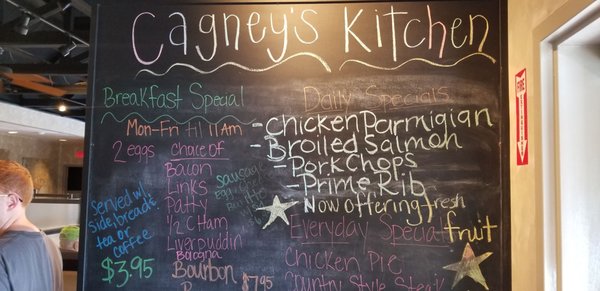 Cagney's Kitchen
Breakfast Special
Mon-Fri til 11 AM
2 eggs choice of
Bacon
Links
Patty
1/2 C Ham
Liverpuddin
Bologna
Bourbon
$7.95
sausage
egg
served w/
side, breads
tea or
coffee
$3.95
Daily Specials
-Chicken Parmigian
-Broiled Salmon
-Pork Chops
-Prime Rib
Now offering fresh
fruit
Everyday Special
Chicken Pie
Country Style Steak
FIRE